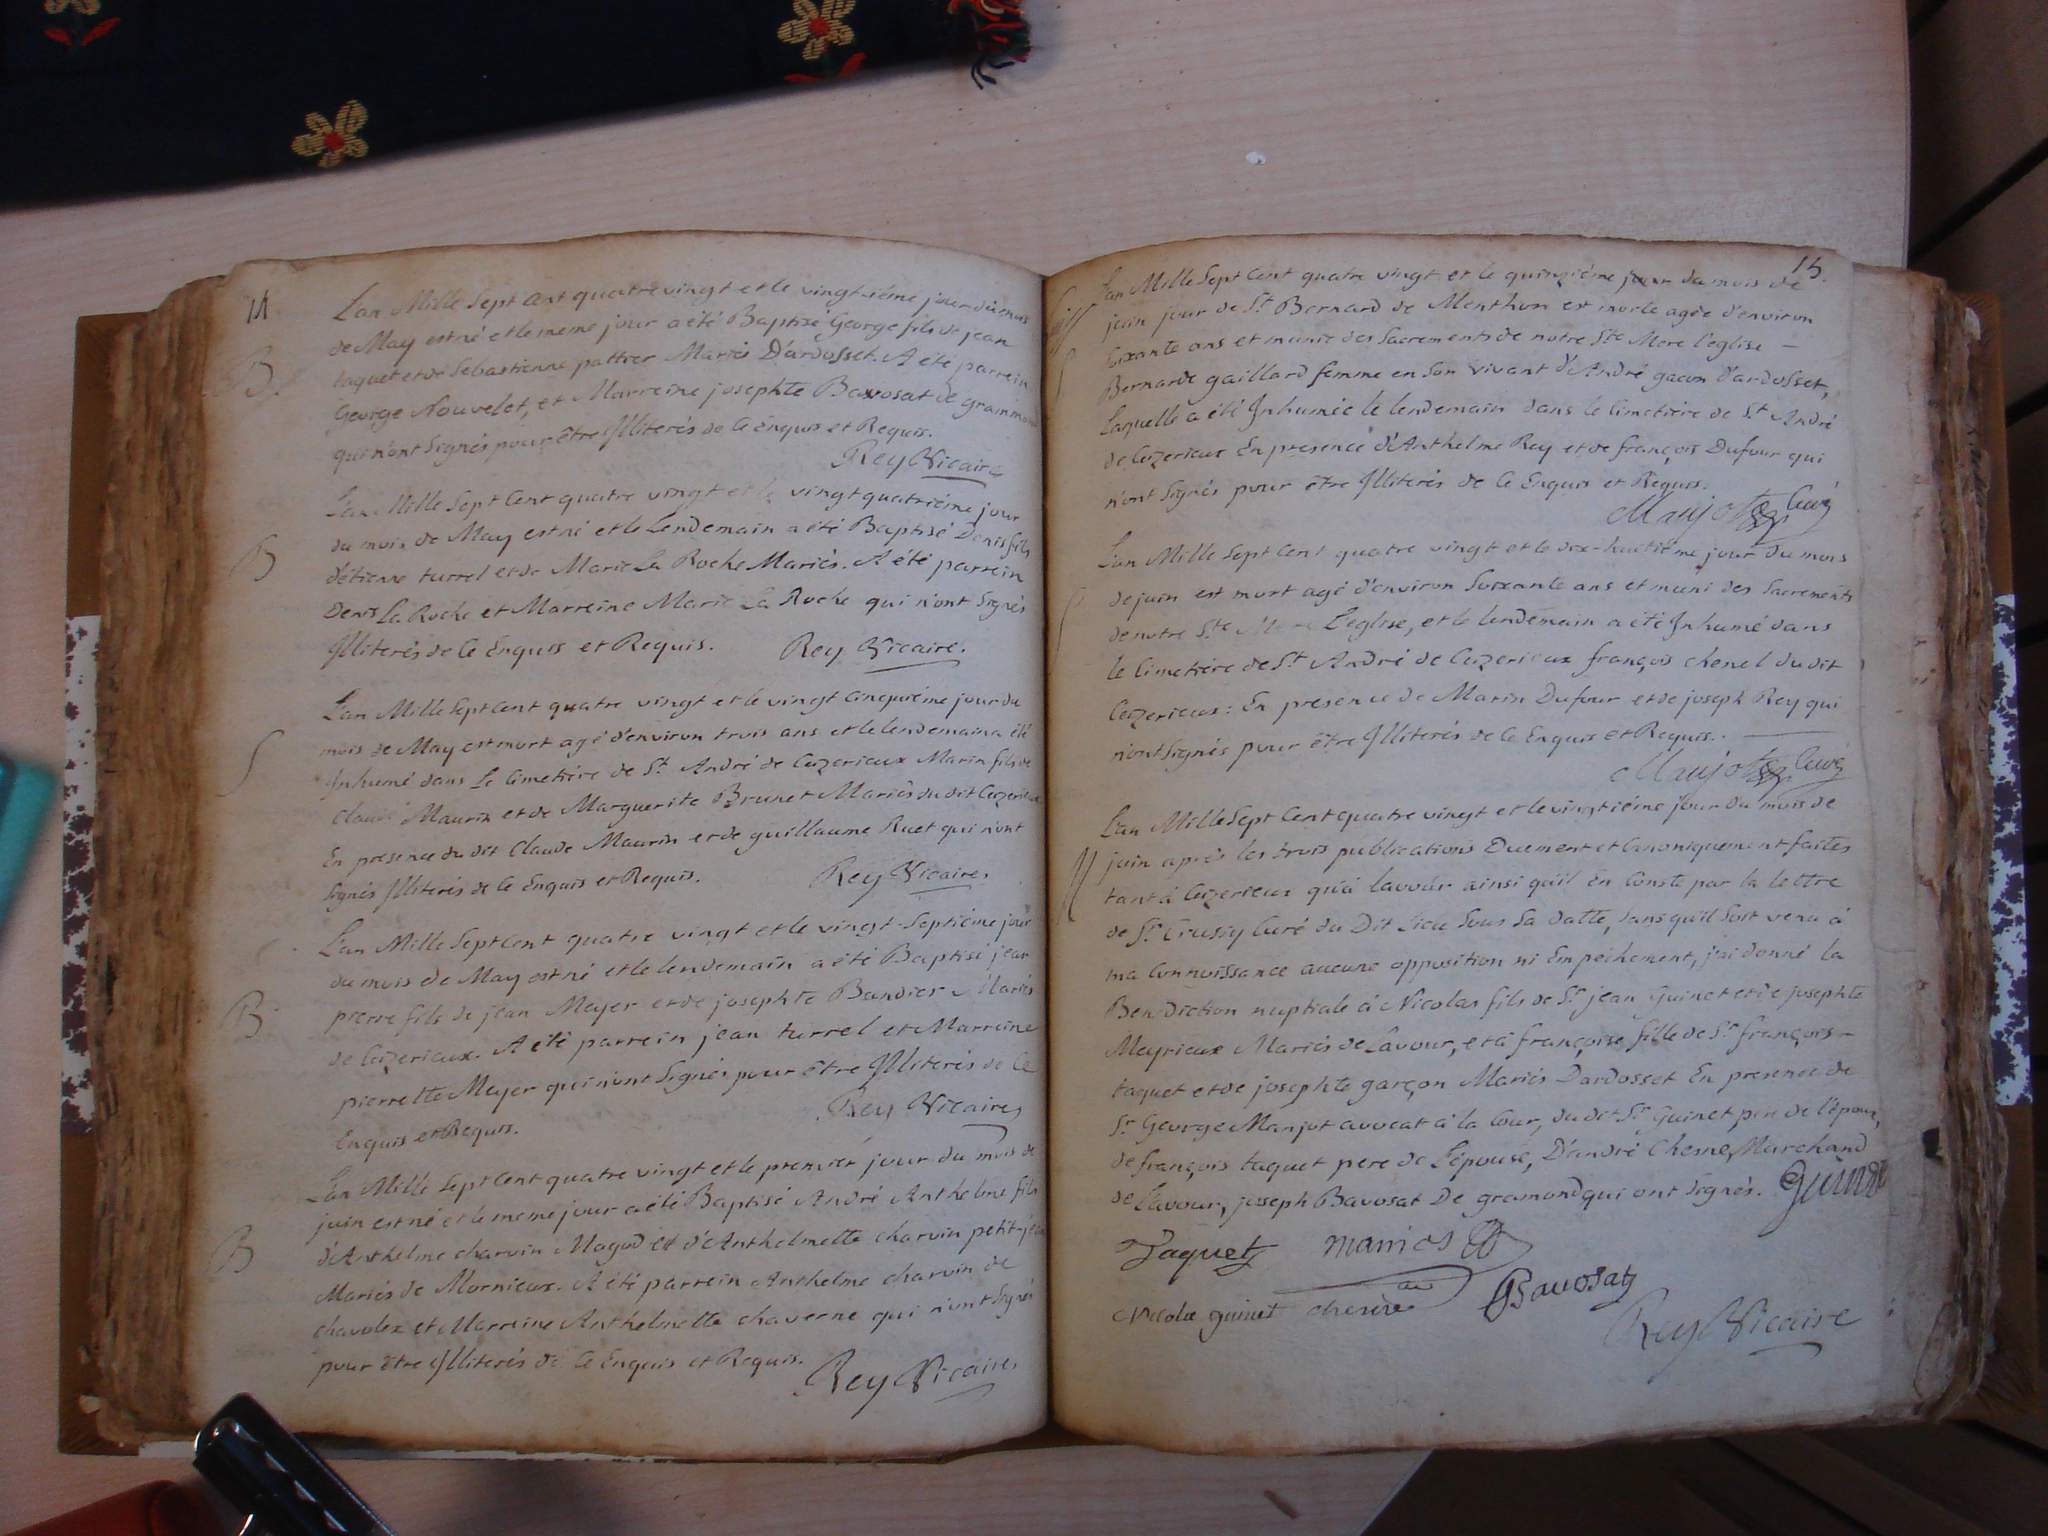 14
L'an Mille Sept Cent quatre vingt et le vingt-ième jour du mois
de May est né et le meme jour a été Baptisé George fils de jean
taquet et de Sebastienne pattier Mariés D'ardosset. A été parrein
George Nouvelet, et Marreine josephte Bavosat de grammond
qui n'ont Signés pour être Illiterés de Ce enquis et Requis.
Rey Vicaire
B.
L'an Mille Sept Cent quatre vingt et le vingt quatriéme jour
du mois de May est né et le Lendemain a été Baptisé Denis fils
B
d'étienne turrel et de Marie La Roche Mariés. A été parrein
Denis La Roche et Marreine Marie La Roche qui n'ont Signés
Illiterés de Ce Enquis et Requis. Rey Vicaire.
L'an Mille Sept Cent quatre vingt et le vingt Cinquiéme jour du
S
mois de May est mort agé d'environ trois ans et le lendemain a été
Inhumé dans Le Cimetiére de St. André de Ceyzerieux Marin fils de
Claude Maurin et de Marguerite Brunet Mariés du dit Ceyzerieux
En presence du dit Claude Maurin et de guillaume Ruet qui n'ont
Signés Illiterés de Ce Enquis et Requis. Rey Vicaire.
L'an Mille Sept Cent quatre vingt et le vingt-Septiéme jour
du mois de May est né et le lendemain a été Baptisé jean
B.
pierre fils de jean Meyer et de josephte Bandier Mariés
de Ceyzerieux. A été parrein jean turrel et Marreine
pierrette Meyer qui n'ont Signés pour être Illiterés de Ce
Enquis et Requis. Rey Vicaire
L'an Mille Sept Cent quatre vingt et le premier jour du mois de
juin est né et le meme jour a été Baptisé André Anthelme fils
B
d'Anthelme charvin Magod et d'Anthelmette charvin petit-jean
Mariés de Mornieux. A été parrein Anthelme charvin de
chavolex et Marreine Anthelmette chaverne qui n'ont Signés
pour être Illiterés de Ce Enquis et Requis. Rey Vicaire
15.
L'an Mille Sept Cent quatre vingt et le quinziéme jour du mois de
juin jour de St Bernard de Menthon est morte agée d'environ
S
Soixante ans et munie des Sacrements de notre Ste Mere l'eglise —
Bernarde gaillard femme en Son vivant d'André gacon d'ardosset,
Laquelle a été Inhumée le lendemain dans le Cimetiére de St André
de Ceyzerieux En presence d'Anthelme Rey et de françois Dufour qui
n'ont Signés pour être Illiterés de Ce Enquis et Requis.
Maujot Curé
L'an Mille Sept Cent quatre vingt et le dix-huitiéme jour du mois
de juin est mort agé d'environ Soixante ans et muni des Sacrements
S
de notre Ste Mere L'eglise, et le lendemain a été Inhumé dans
le Cimetiére de St André de Ceyzerieux françois chenel du dit
Ceyzerieux: En presence de Marin Dufour et de joseph Rey qui
n'ont Signés pour être Illiterés de Ce Enquis et Requis. —
Maujot Curé
L'an Mille Sept Cent quatre vingt et le vingtiéme jour du mois de
juin aprés les trois publications Duement et Canoniquement faites
M
tant à Ceyzerieux qu'à lavour ainsi qu'il En Conste par la lettre
de Sr. Crussy Curé du Dit Lieu Sous Sa datte, Sans qu'il Soit venu à
ma Connoissance aucune opposition ni Empêchement, j'ai donné la
Benediction nuptiale à Nicolas fils de Sr jean Guinet et de josephte
Meyrieux Mariés de Lavour, et à françoise fille de Sr françois —
taquet et de josephte garçon Mariés Dardosset En presence de
Sr George Manjot avocat à la Cour, du dit Sr Guinet pere de l'époux,
de françois taquet pere de L'épouse, D'andré Chesne, Marchand
de Lavour, joseph Bavosat De gramond qui ont Signés. Guinet
Taquet
Nicolas guinet chesne Bavosat
Rey Vicaire